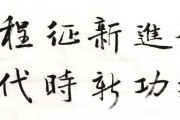 進新征程
功新時代